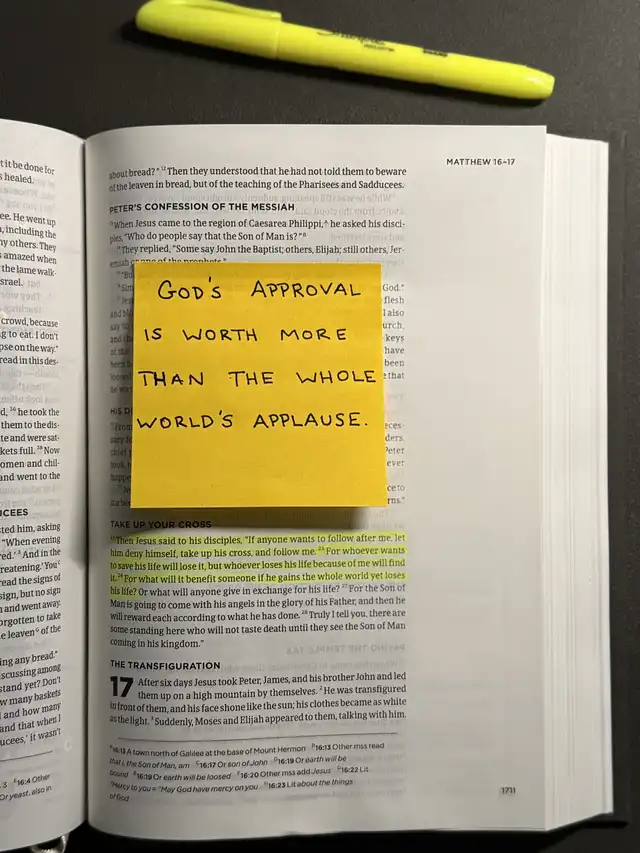 Sharpie
MATTHEW 16–17
t it be done for
s healed.
ee. He went up
, including the
ny others. They
s amazed when
the lame walk-
srael.
crowd, because
g to eat. I don't
pse on the way."
read in this des-
d, 36 he took the
them to the dis-
te and were sat-
kets full. 38 Now
omen and chil-
and went to the
UCEES
sted him, asking
"When evening
red.' 3 And in the
reatening.' You
read the signs of
sign, but no sign
n and went away.
orgotten to take
e leaven of the
ing any bread."
iscussing among
stand yet? Don't
w many baskets
l and how many
and that when I
ucees,' it wasn't
3 16:4 Other
Or yeast, also in
about bread?" 12 Then they understood that he had not told them to beware
of the leaven in bread, but of the teaching of the Pharisees and Sadducees.
PETER'S CONFESSION OF THE MESSIAH
When Jesus came to the region of Caesarea Philippi, he asked his disci-
ples, "Who do people say that the Son of Man is?"
They replied, "Some say John the Baptist; others, Elijah; still others, Jer-
emiah or one of the prophets."
GOD'S APPROVAL
IS WORTH MORE
THAN THE WHOLE
WORLD'S APPLAUSE.
God."
flesh
I also
urch,
keys
have
been
that
HIS D
eces-
ders,
Peter
ever
ce to
rns."
TAKE UP YOUR CROSS
24 Then Jesus said to his disciples, "If anyone wants to follow after me, let
him deny himself, take up his cross, and follow me. 25 For whoever wants
to save his life will lose it, but whoever loses his life because of me will find
it. 26 For what will it benefit someone if he gains the whole world yet loses
his life? Or what will anyone give in exchange for his life? 27 For the Son of
Man is going to come with his angels in the glory of his Father, and then he
will reward each according to what he has done. 28 Truly I tell you, there are
some standing here who will not taste death until they see the Son of Man
coming in his kingdom."
THE TRANSFIGURATION
17 After six days Jesus took Peter, James, and his brother John and led
them up on a high mountain by themselves. 2 He was transfigured
in front of them, and his face shone like the sun; his clothes became as white
as the light. 3 Suddenly, Moses and Elijah appeared to them, talking with him.
16:13 A town north of Galilee at the base of Mount Hermon 16:13 Other mss read
that I, the Son of Man, am 16:17 Or son of John 16:19 Or earth will be
bound 16:19 Or earth will be loosed 16:20 Other mss add Jesus 16:22 Lit
"Mercy to you = "May God have mercy on you 16:23 Lit about the things
of God
1711